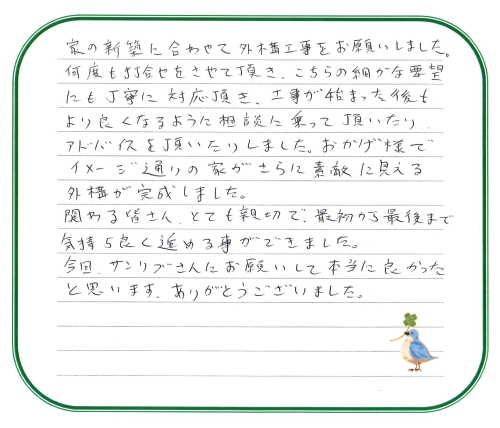 家の新築に合わせて外構工事をお願いしました。
何度も打合せをさせて頂き、こちらの細かな要望
にも丁寧に対応頂き、工事が始まった後も
より良くなるように相談に乗って頂いたり、
アドバイスを頂いたりしました。おかげ様で
イメージ通りの家がさらに素敵に見える
外構が完成しました。
関わる皆さん、とても親切で、最初から最後まで
気持ち良く進める事ができました。
今回、サンリブさんにお願いして本当に良かった
と思います。ありがとうございました。